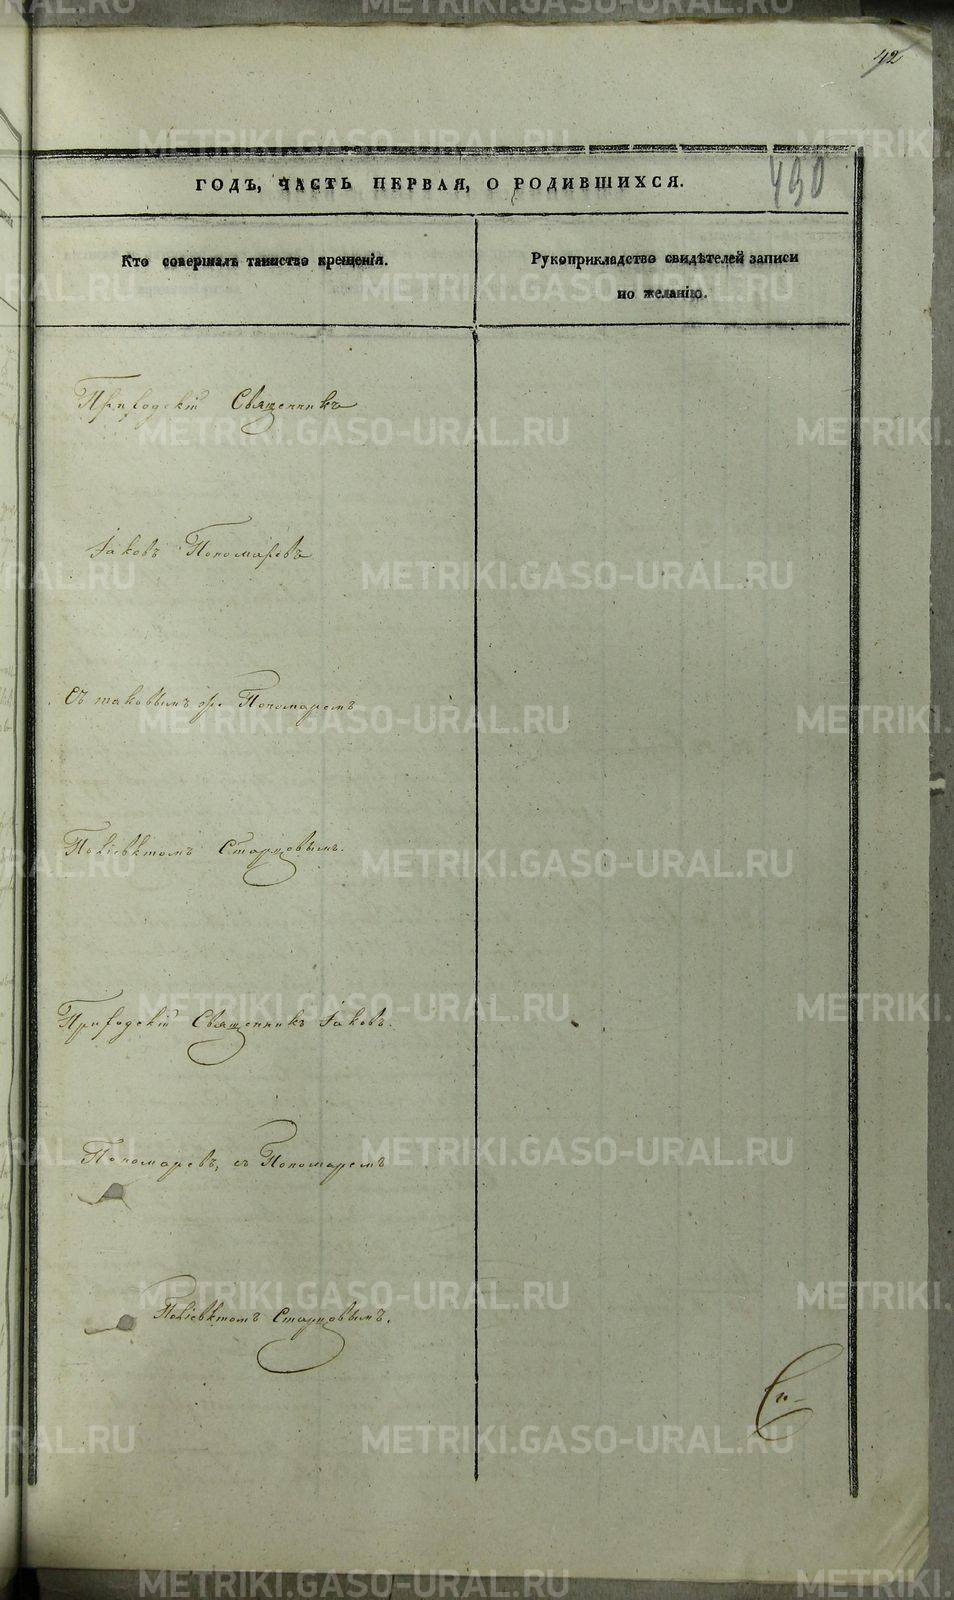 42
490
ГОДЪ, ЧАСТЬ ПЕРВАЯ, О РОДИВШИХСЯ.
Кто совершалъ таинство крещенія.
Рукоприкладство свидѣтелей записи
по желанію.
Приходскій Священникъ
Іаковъ Пономаревъ
Съ таковымъ же Пономаремъ
Поліевктомъ Старцовымъ.
Приходскій Священникъ Іаковъ.
Пономаревъ, съ Пономаремъ
Поліевктомъ Старцовымъ.
METRIKI.GASO-URAL.RU